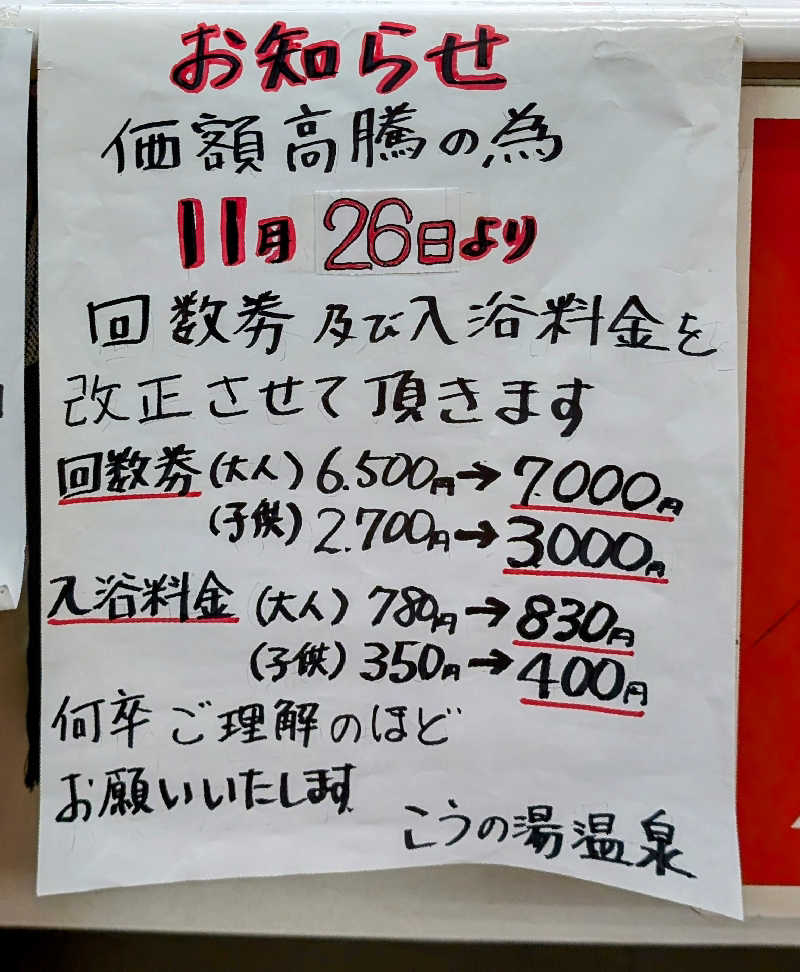 お知らせ
価額高騰の為
11月26日より
回数券及び入浴料金を
改正させて頂きます
回数券(大人)6.500円→7.000円
(子供)2.700円→3.000円
入浴料金(大人)780円→830円
(子供)350円→400円
何卒ご理解のほど
お願いいたします
こうの湯温泉